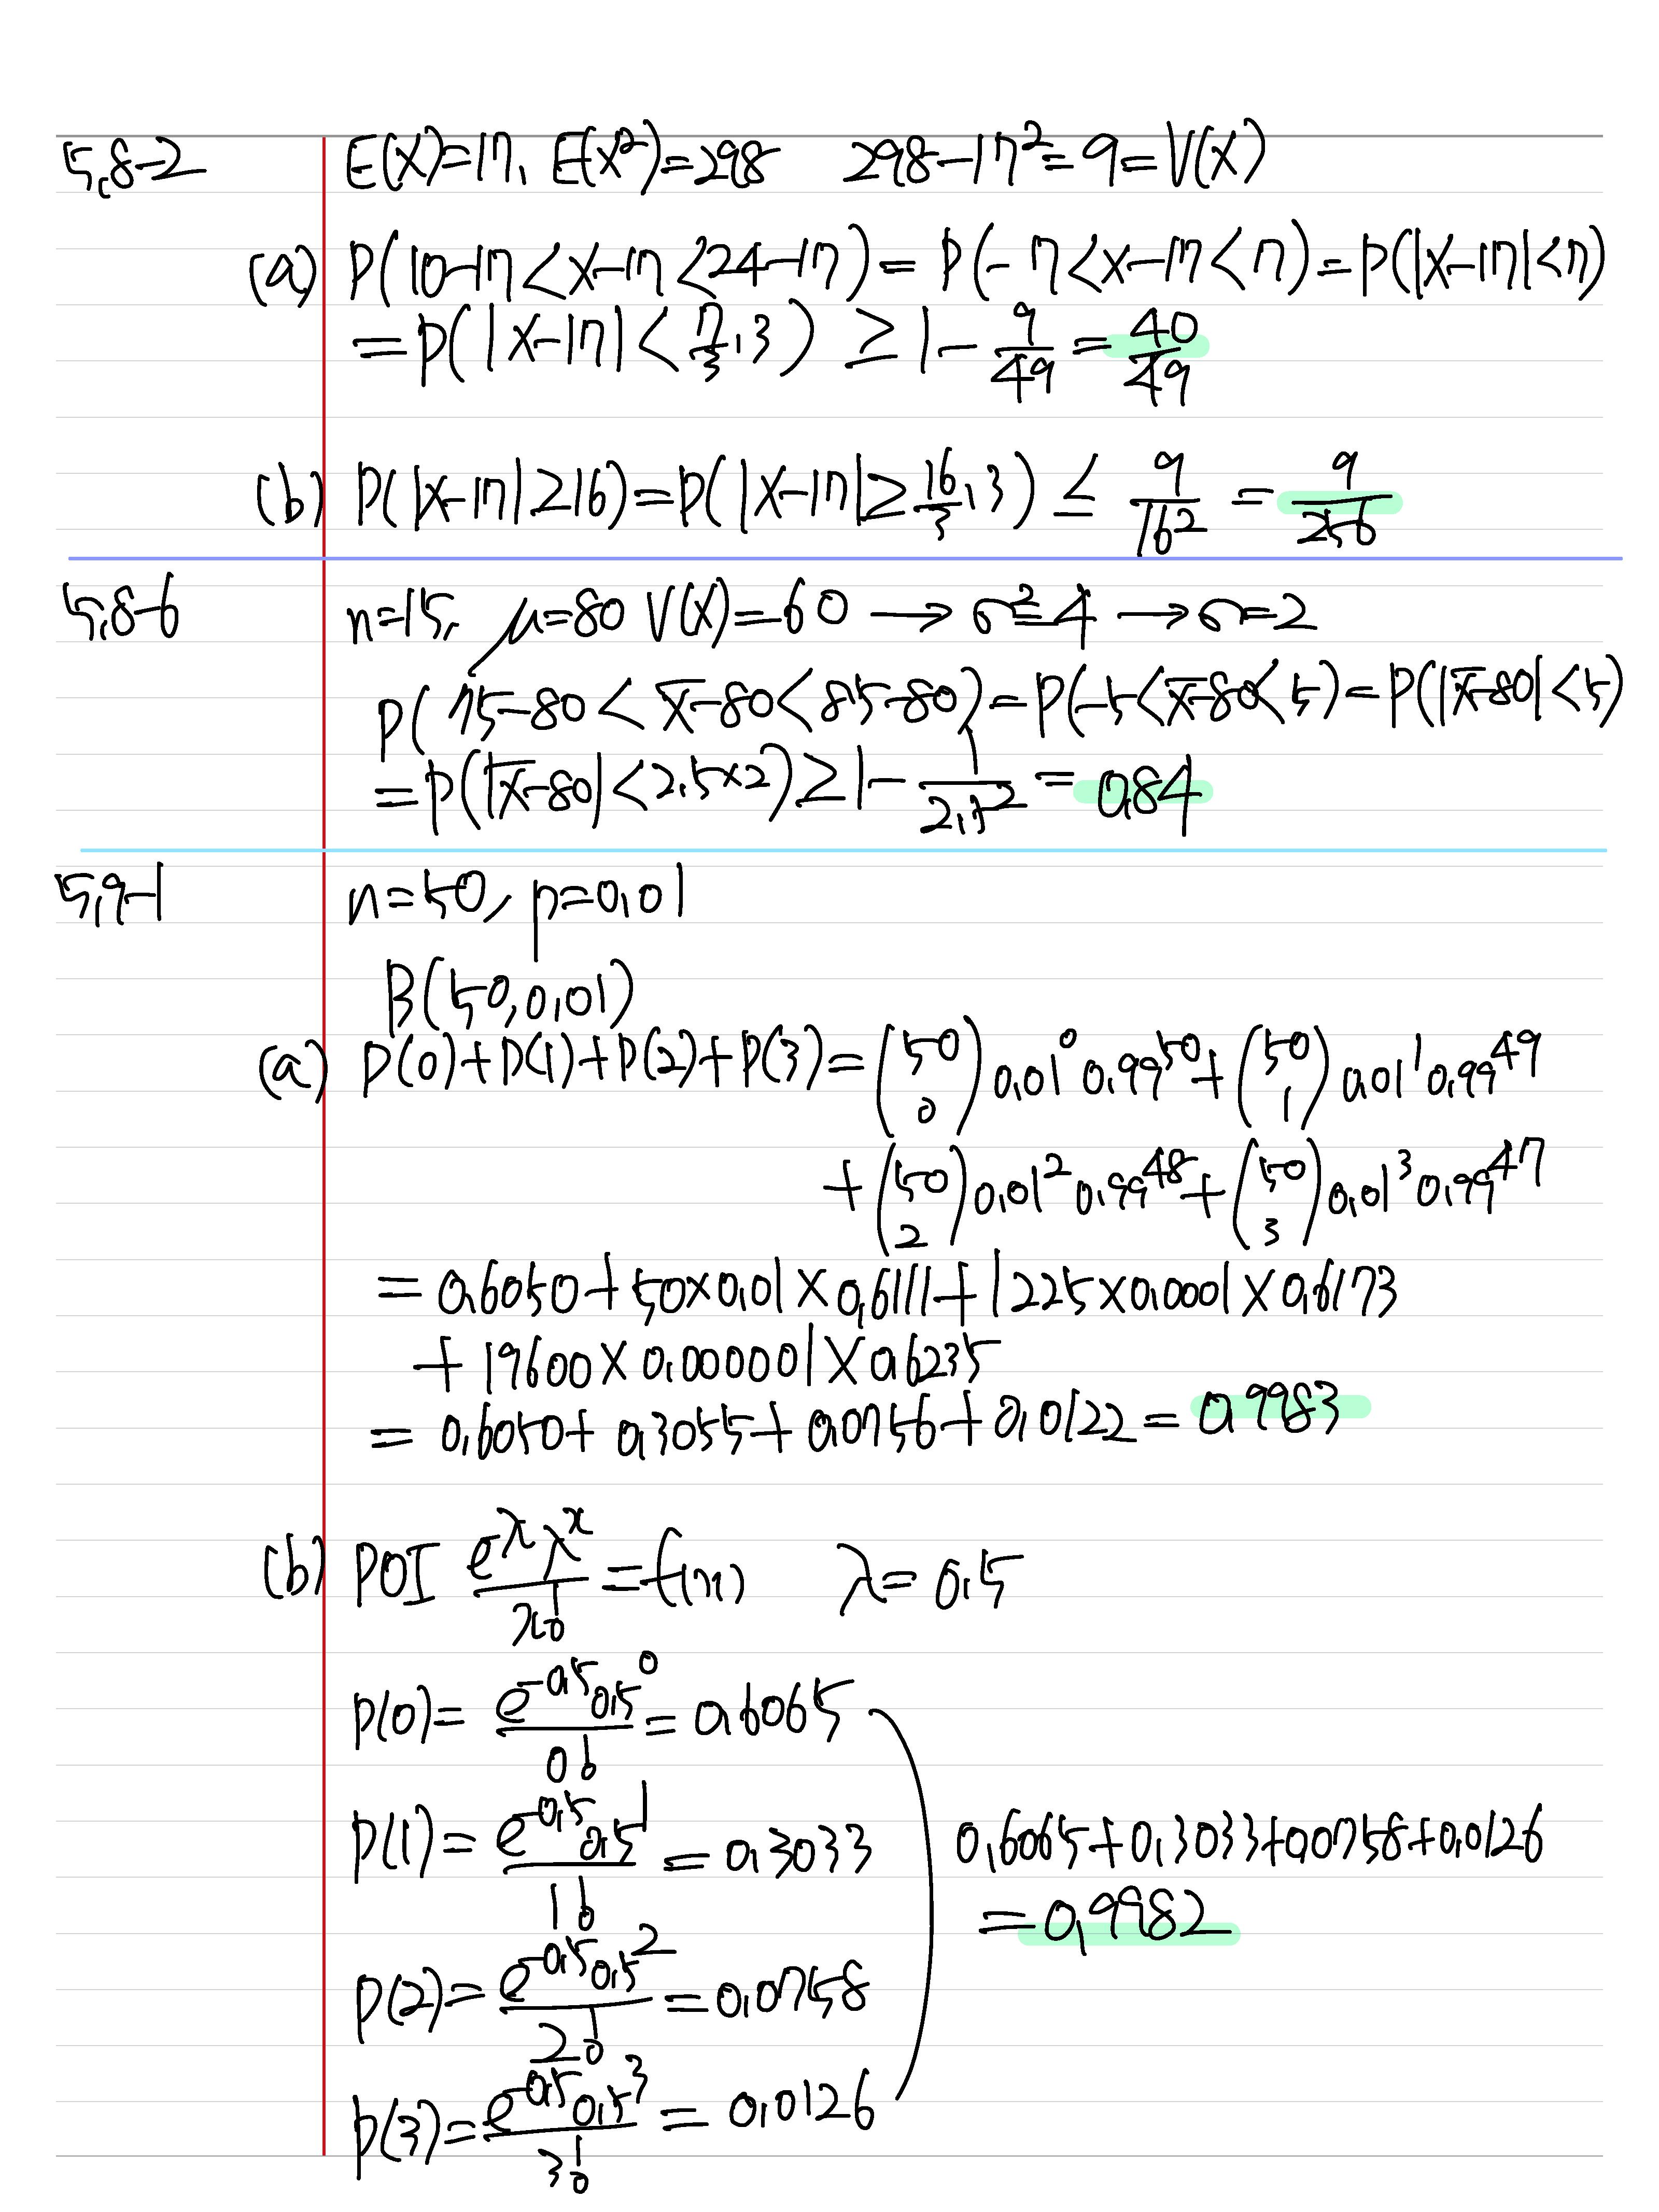 5.8-2 E(X)=17, E(X²)=298 298-17²=9=V(X)
(a) P(10-17<X-17<24-17)=P(-7<X-17<7)=P(|X-17|<7)
=P(|X-17|<7/3·3) ≥ 1-9/49=40/49
(b) P(|X-17|≥16)=P(|X-17|≥16/3·3) ≤ 9/16² = 9/256
5.8-6 n=15, μ=80 V(X)=60 → σ²=4 → σ=2
P(75-80<x̄-80<85-80)=P(-5<x̄-80<5)=P(|x̄-80|<5)
=P(|x̄-80|<2.5×2)≥1-1/2.5²=0.84
5.9-1 n=50, p=0.01
B(50,0.01)
(a) P(0)+P(1)+P(2)+P(3)=(50 0)0.01⁰0.99⁵⁰+(50 1)0.01¹0.99⁴⁹
+(50 2)0.01²0.99⁴⁸+(50 3)0.01³0.99⁴⁷
=0.6050+50×0.01×0.6111+1225×0.0001×0.6173
+19600×0.000001×0.6235
=0.6050+0.3055+0.0756+0.0122=0.9983
(b) POI e^λ λ^x/x!=f(x) λ=0.5
P(0)=e^-0.5 0.5⁰/0!=0.6065
P(1)=e^-0.5 0.5¹/1!=0.3033
0.6065+0.3033+0.0758+0.0126
=0.9982
P(2)=e^-0.5 0.5²/2!=0.0758
P(3)=e^-0.5 0.5³/3!=0.0126